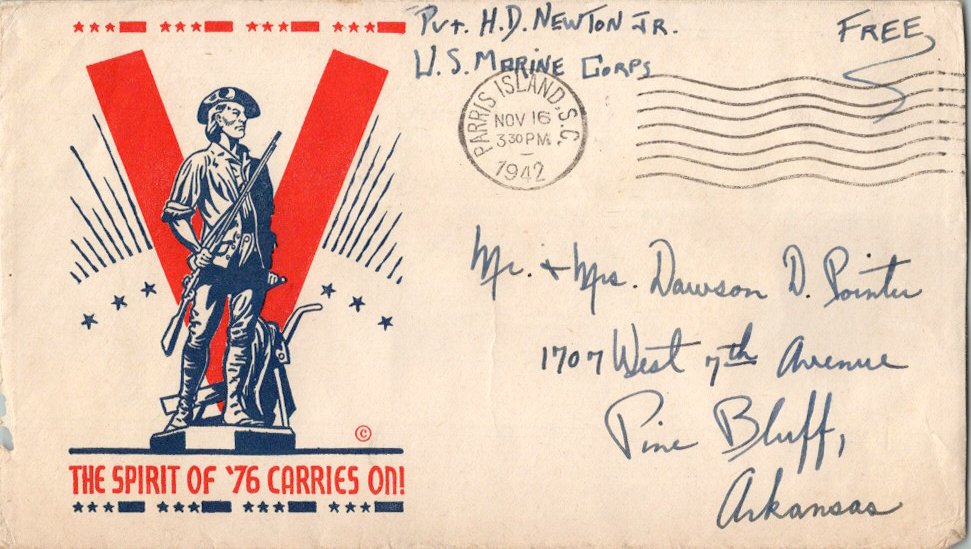 Pvt. H.D. Newton Jr.
FREE
U.S. Marine Corps
PARRIS ISLAND, S.C.
NOV 16
3 30 PM
1942
Mr. + Mrs. Dawson D. Pointer
1707 West 7th Avenue
Pine Bluff,
Arkansas
©
THE SPIRIT OF '76 CARRIES ON!